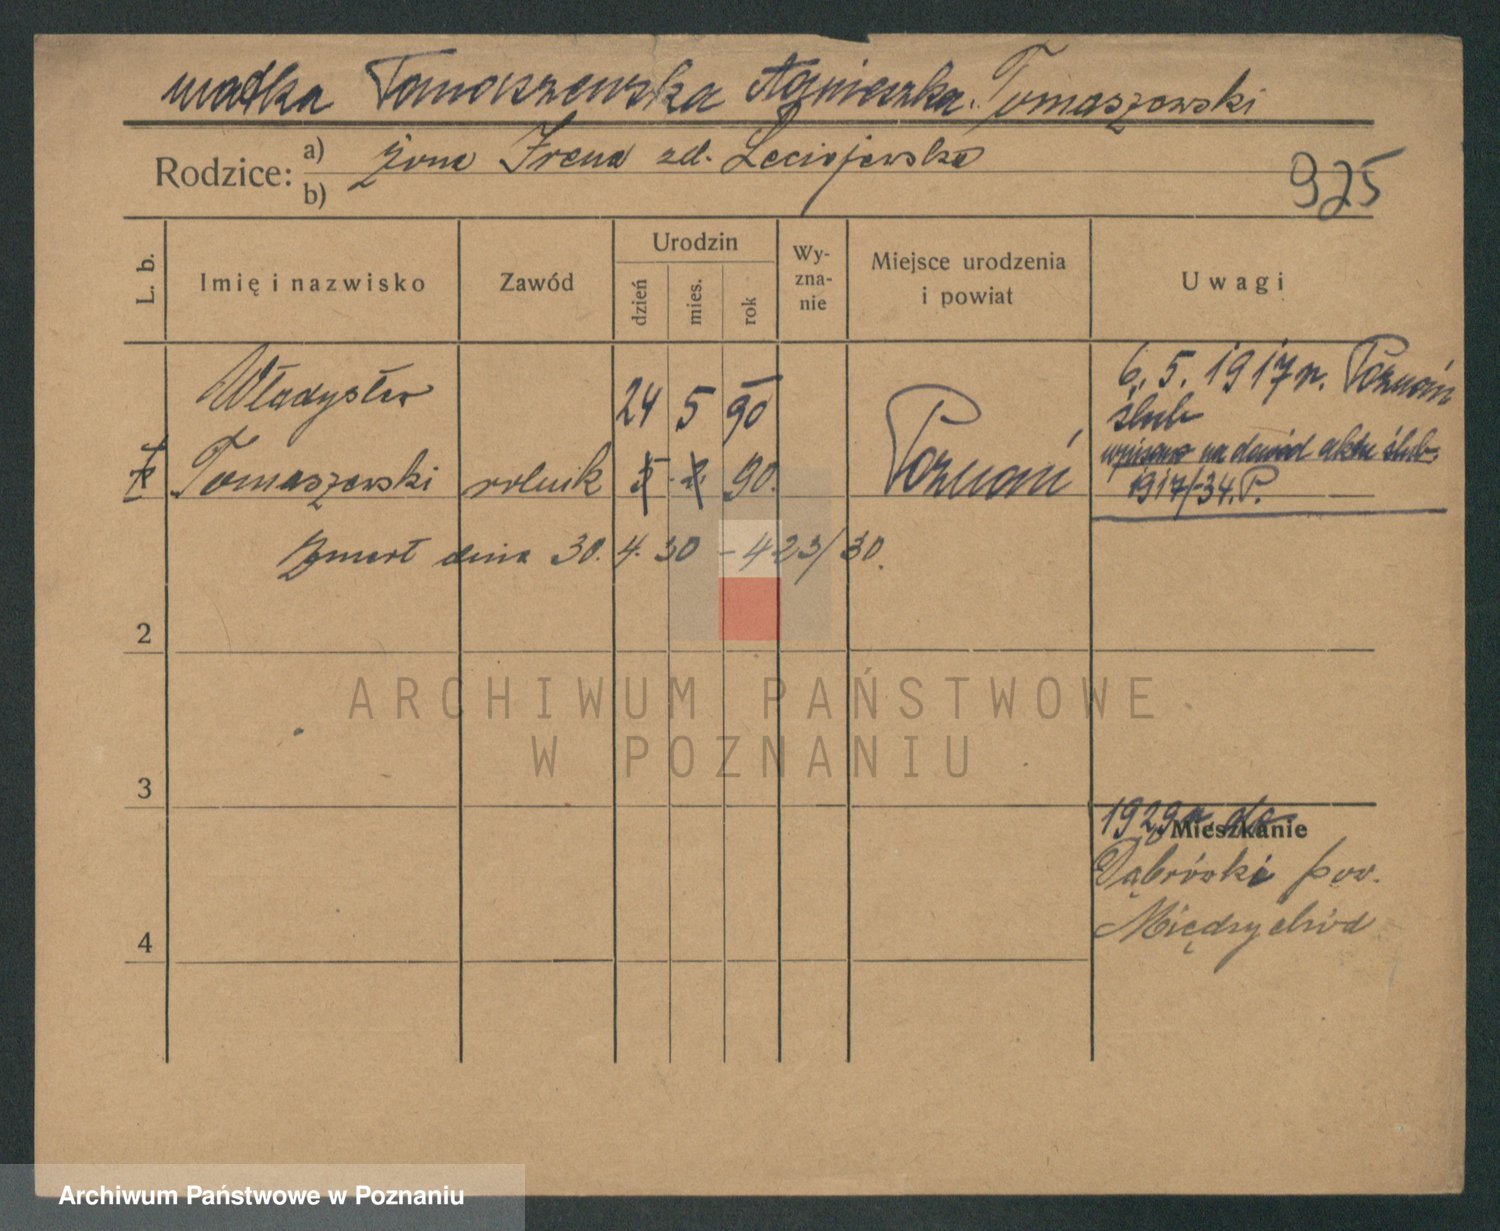 matka Tomaszewska Agnieszka. Tomaszewski
Rodzice: a) żona Irena zd. Leciejewska
b)
925
L. b.
Imię i nazwisko
Zawód
Urodzin
dzień
mies.
rok
Wy-
zna-
nie
Miejsce urodzenia
i powiat
Uwagi
Władysław
24 5 90
6. 5. 1917 r. Poznań
ślub
Tomaszewski rolnik 5 2 90. Poznań
wpisano na dowód aktu ślub.
1917/-34. P.
Zmarł dnia 30. 4. 30 - 423/30.
2
ARCHIWUM PAŃSTWOWE
W POZNANIU
3
1929 r. do
Mieszkanie
Dąbrówki pow.
Międzychód
4
Archiwum Państwowe w Poznaniu